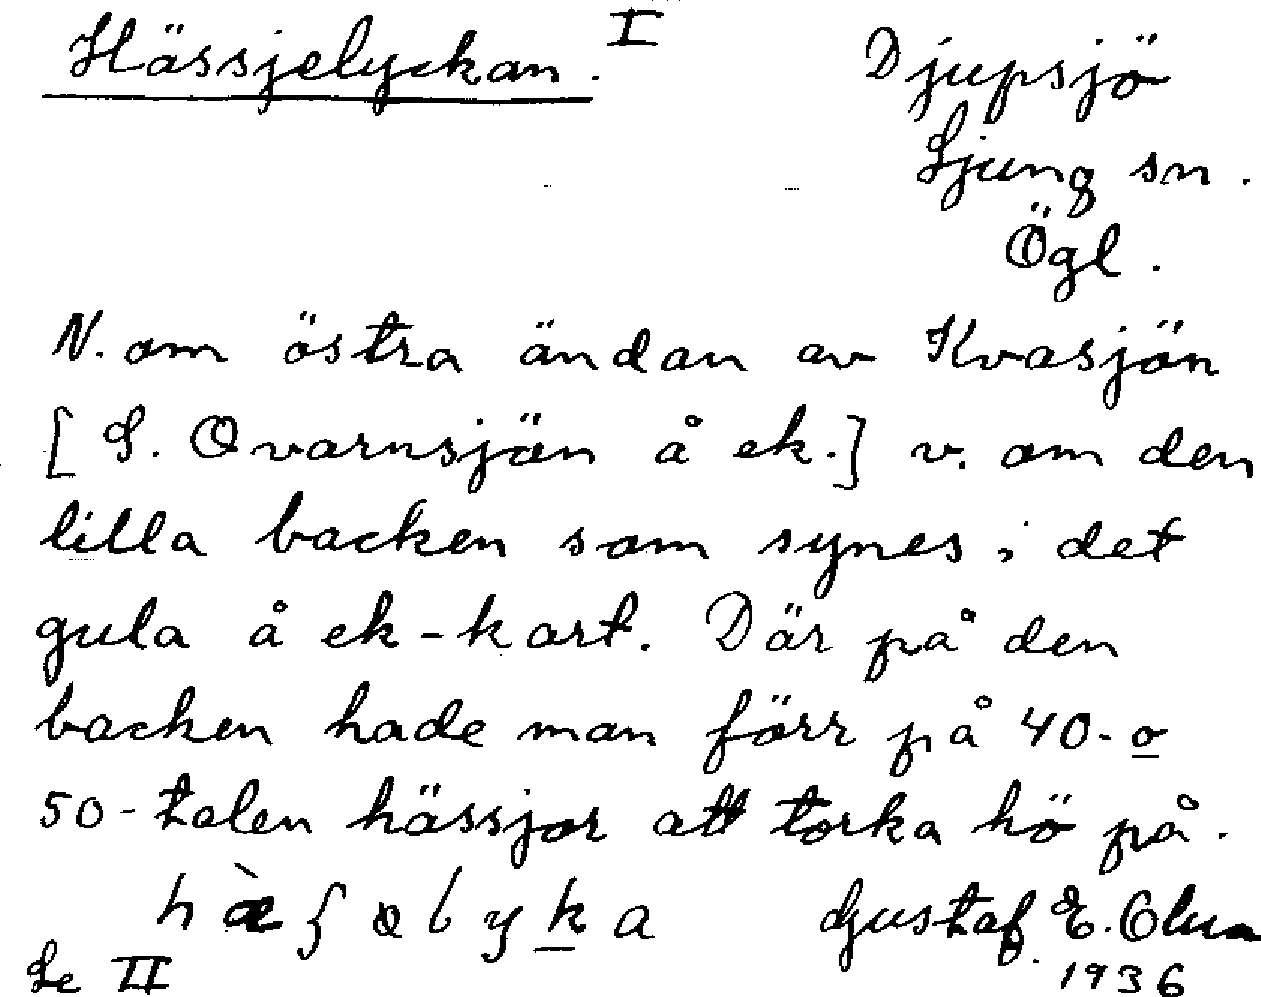 Hässjelyckan. I
Djupsjö
Ljung sn.
Ögl.
N. om östra ändan av Kvasjön
[S. Qvarnsjön å ek.] v. om den
lilla backen som synes i det
gula å ek-kart. Där på den
backen hade man förr på 40- o
50-talen hässjor att torka hö på.
hæ̀ʃəlyka
Gustaf E. Olun
1936
Se II